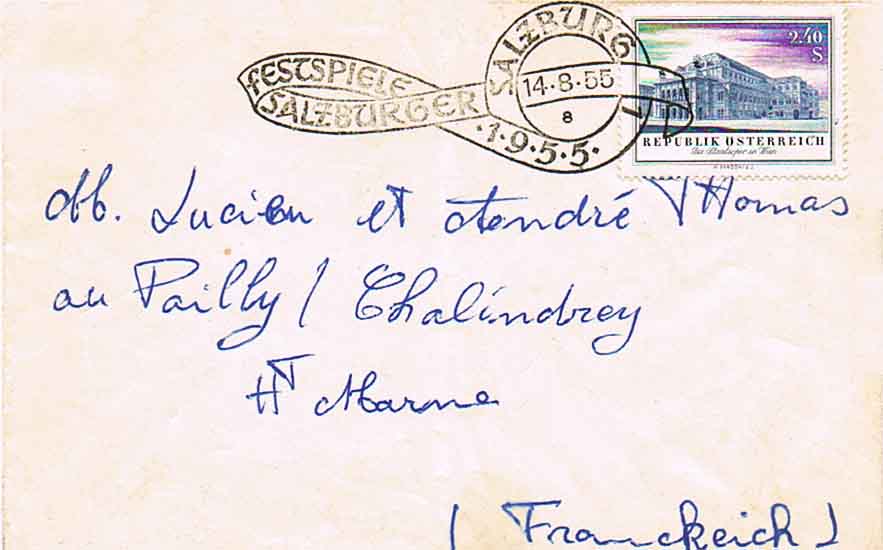 FESTSPIELE
SALZBURGER
SALZBURG 1
14.-8.-55
8
·1·9·5·5·
2.40
S
REPUBLIK ÖSTERREICH
Die Staatsoper in Wien
MM. Lucien et André Thomas
au Pailly / Chalindrey
Hte Marne
( Franckeich )